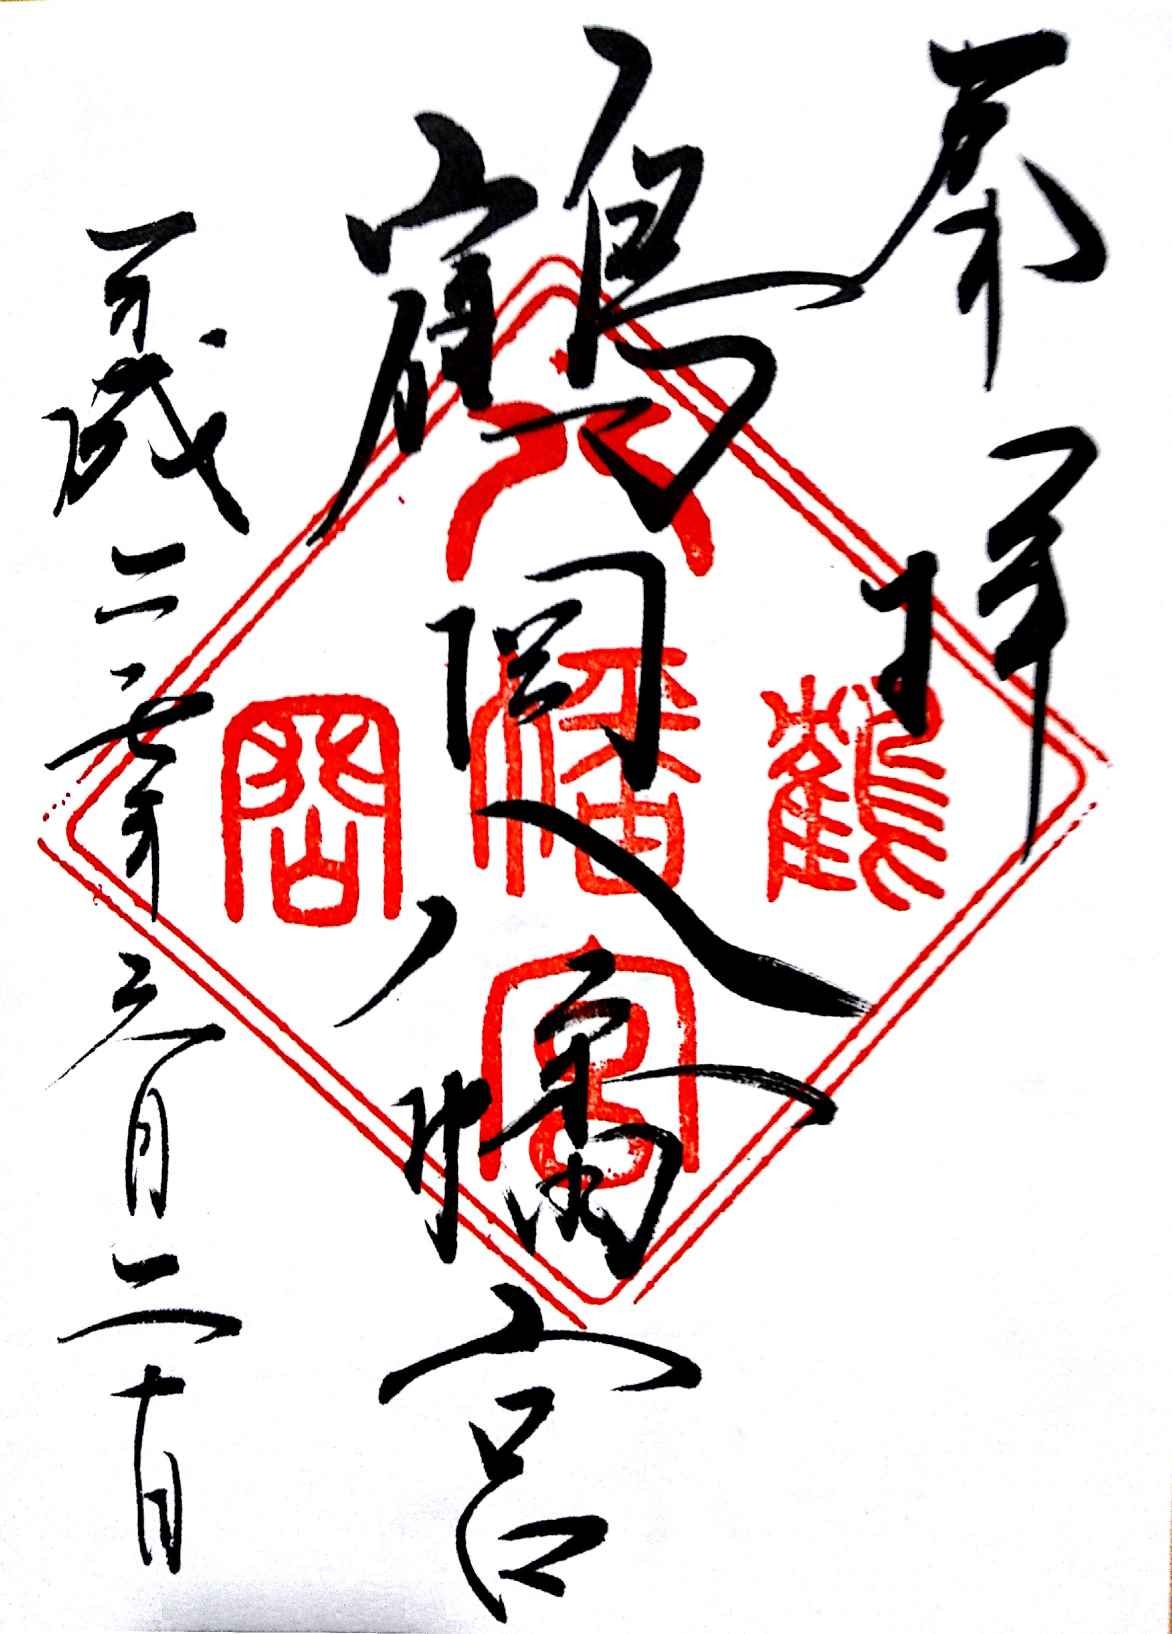 奉拝
鶴岡八幡宮
平成二十七年三月二十日
鶴岡
八幡宮